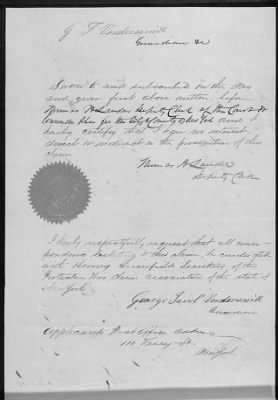 G F Vandersmith
Guardian &c
Sworn to and subscribed on the day
and year first above written before
H Lander Deputy Clerk of the Court of
Common Pleas for the City & County of New York and I
hereby certify that I have no interest
direct or indirect in the prosecution of this
claim
H Lander
Deputy Clerk
I hereby respectfully request that all corres-
pondence relating to this claim be conducted
with Henry Secretary of the
Protective War Claim Association of the State of
New York
George
Guardian
Applicants Post Office Address
111 Vesey St
New York